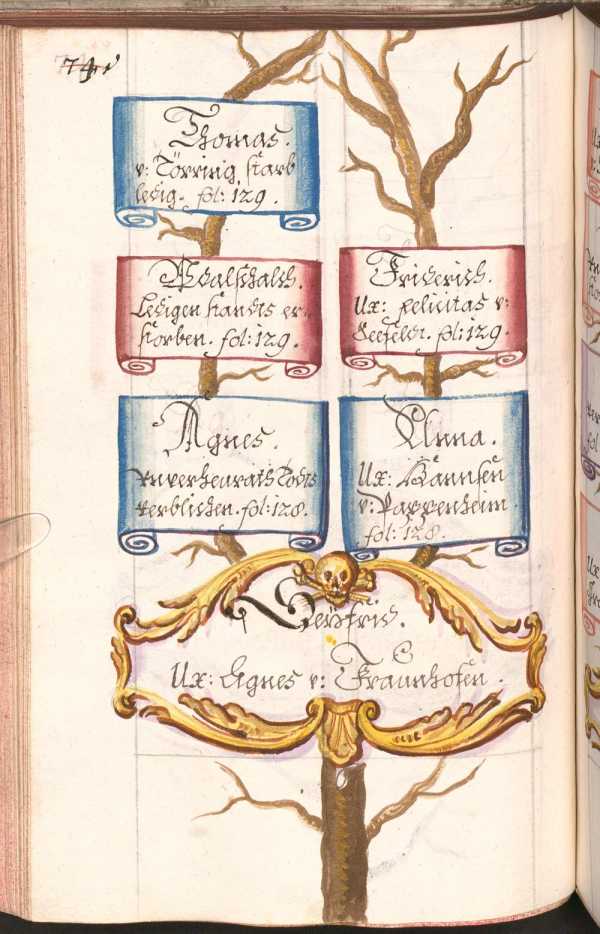 74
Thomas.
v: Törring starb
ledig. fol: 129.
Ledigen standts er=
storben. fol: 129.
Friderich.
Ux: felicitas v:
Seefeldt. fol: 129.
Agnes.
unverheurath Todts
verblichen. fol: 128.
Anna.
Ux: Hannsen
v: Pappenheim.
fol: 128.
Seyfrid.
Ux: Agnes v: Fraunhofen.